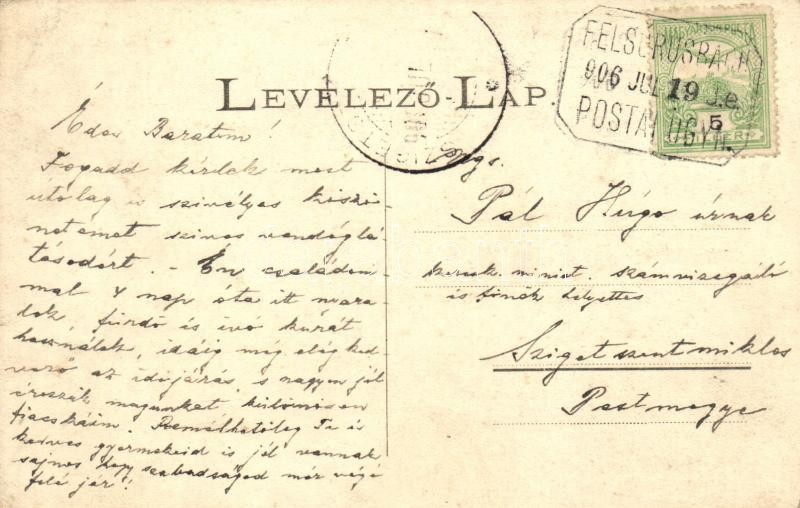 LEVELEZŐ-LAP.
FELSŐRUSBACH
906 JUL 19 d.e.
POSTAI ÜGYN.
MAGYAR KIR. POSTA
5
Édes Barátom!
Fogadd kérlek most
utólag is szivélyes köszö-
netemet szives vendéglá-
tásodért. – Én családom-
mal 4 nap óta itt nyara-
lok, fürdő és ivó kurát
használok, idáig még elég ked-
vező az időjárás, s nagyon jól
érezzük magunkat különösen
fiacskáim. Remélhetőleg Te és
kedves gyermekeid is jól vannak
sajnos hogy szabadságod már végé
felé jár!
Ngs.
Pál Hugo úrnak
keresk. minist. számvizsgáló
és főnök helyettes
Szigetszentmiklos
Pestmegye